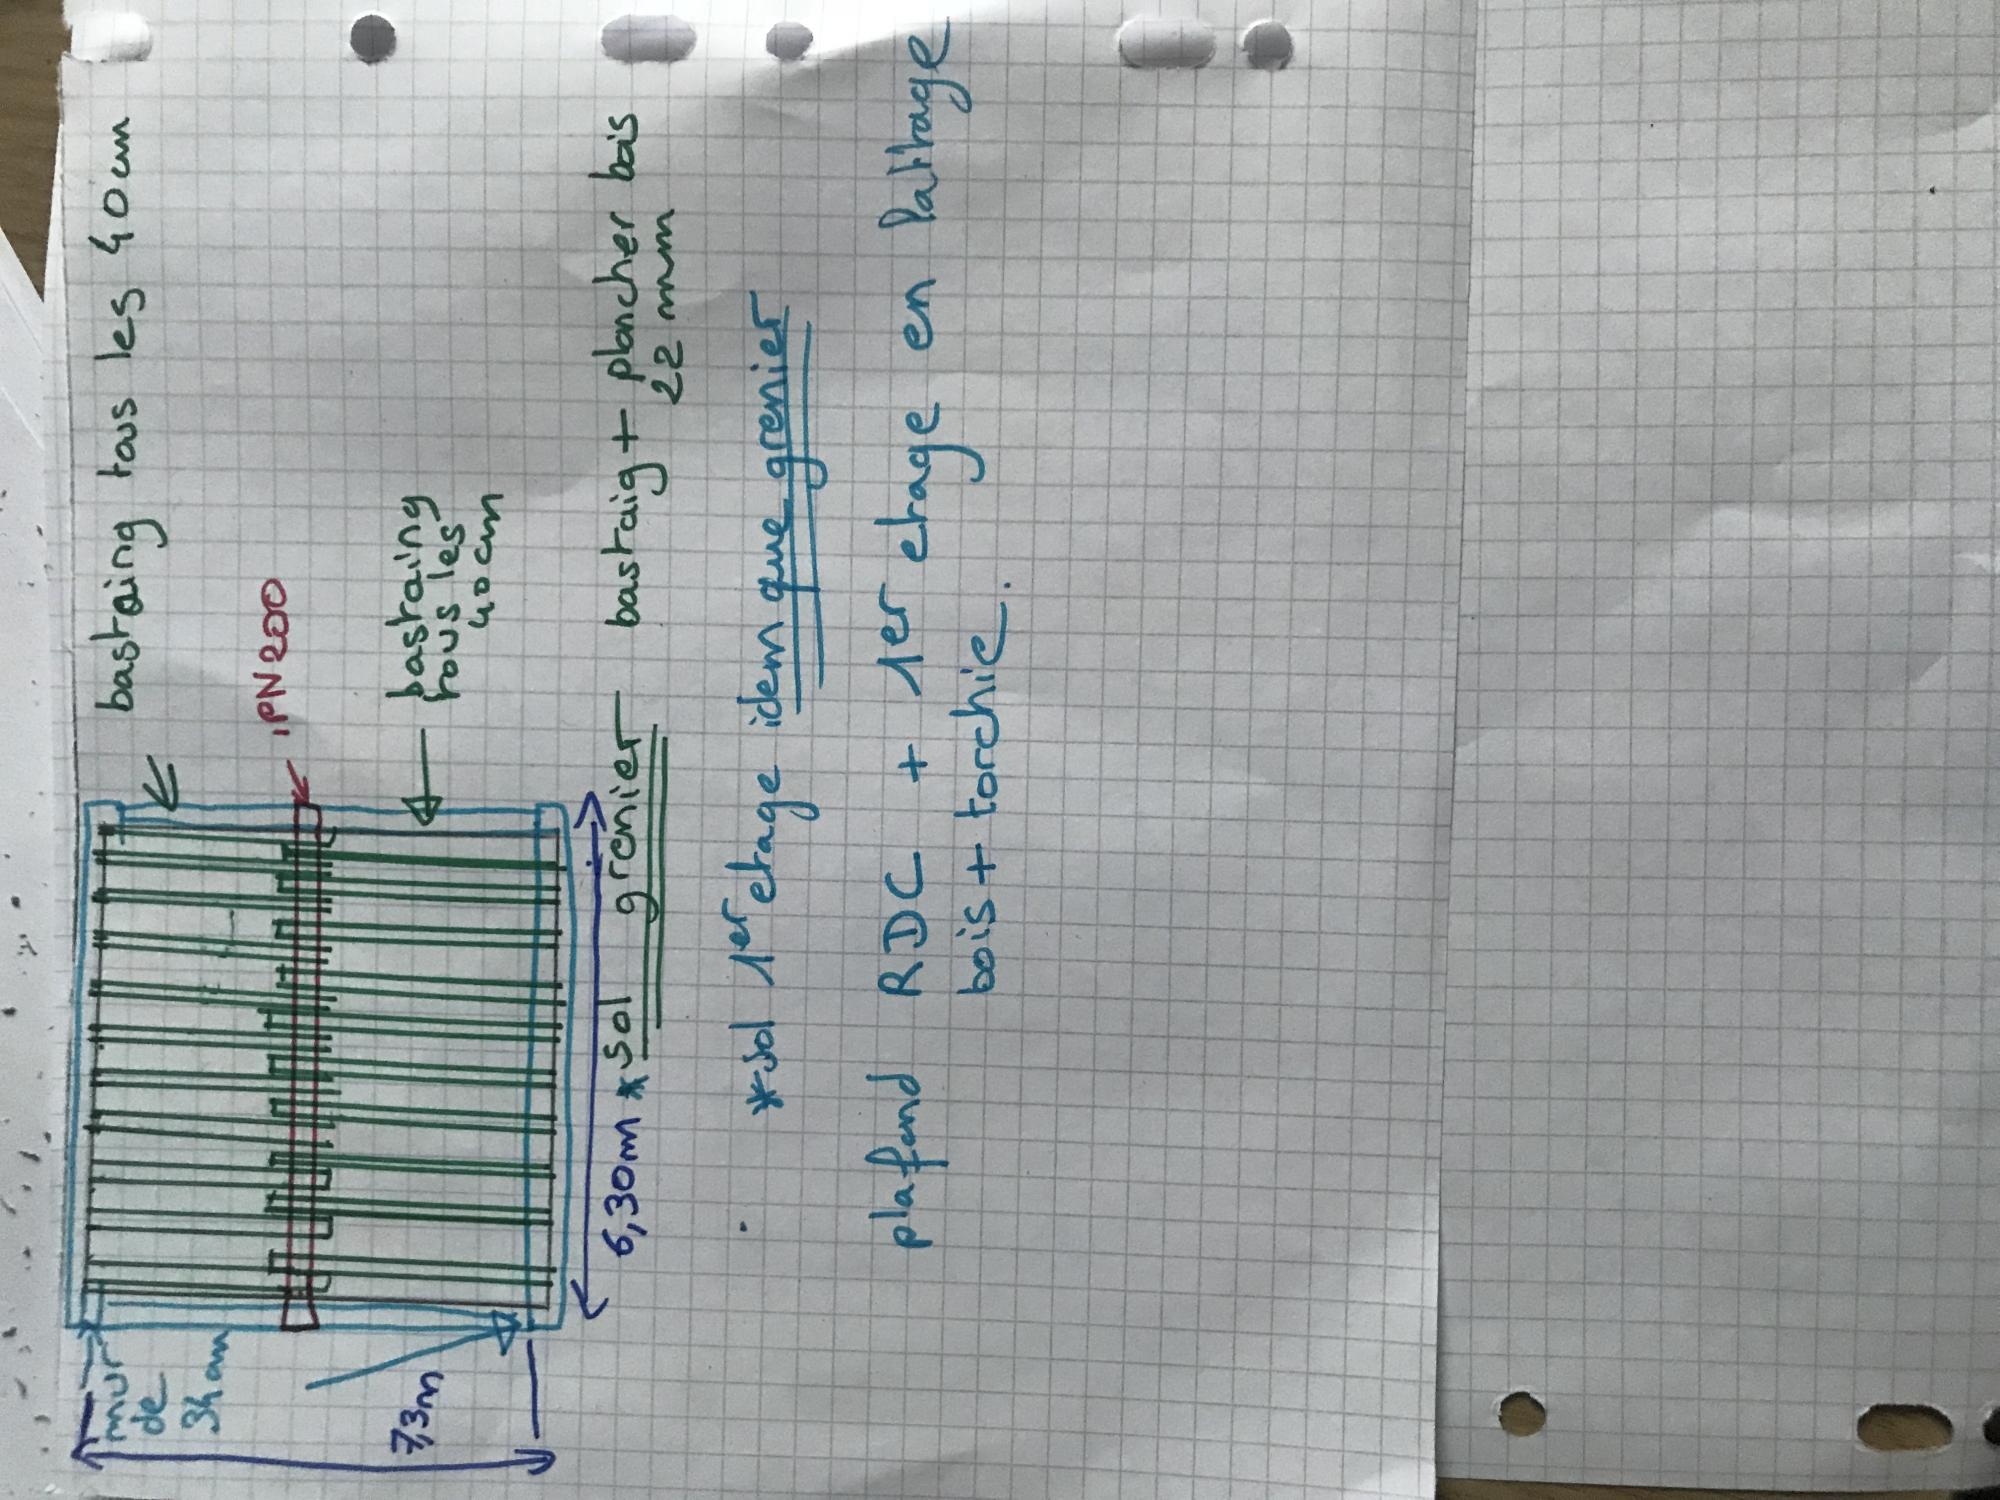 bastaing tous les 40cm
iPN200
bastaing
tous les
40cm
mur
de
7,3m
6,30m
*sol grenier bastaig + plancher bois
22 mm
*sol 1er etage idem que grenier
plafond RDC + 1er etage en lattage
bois + torchie.